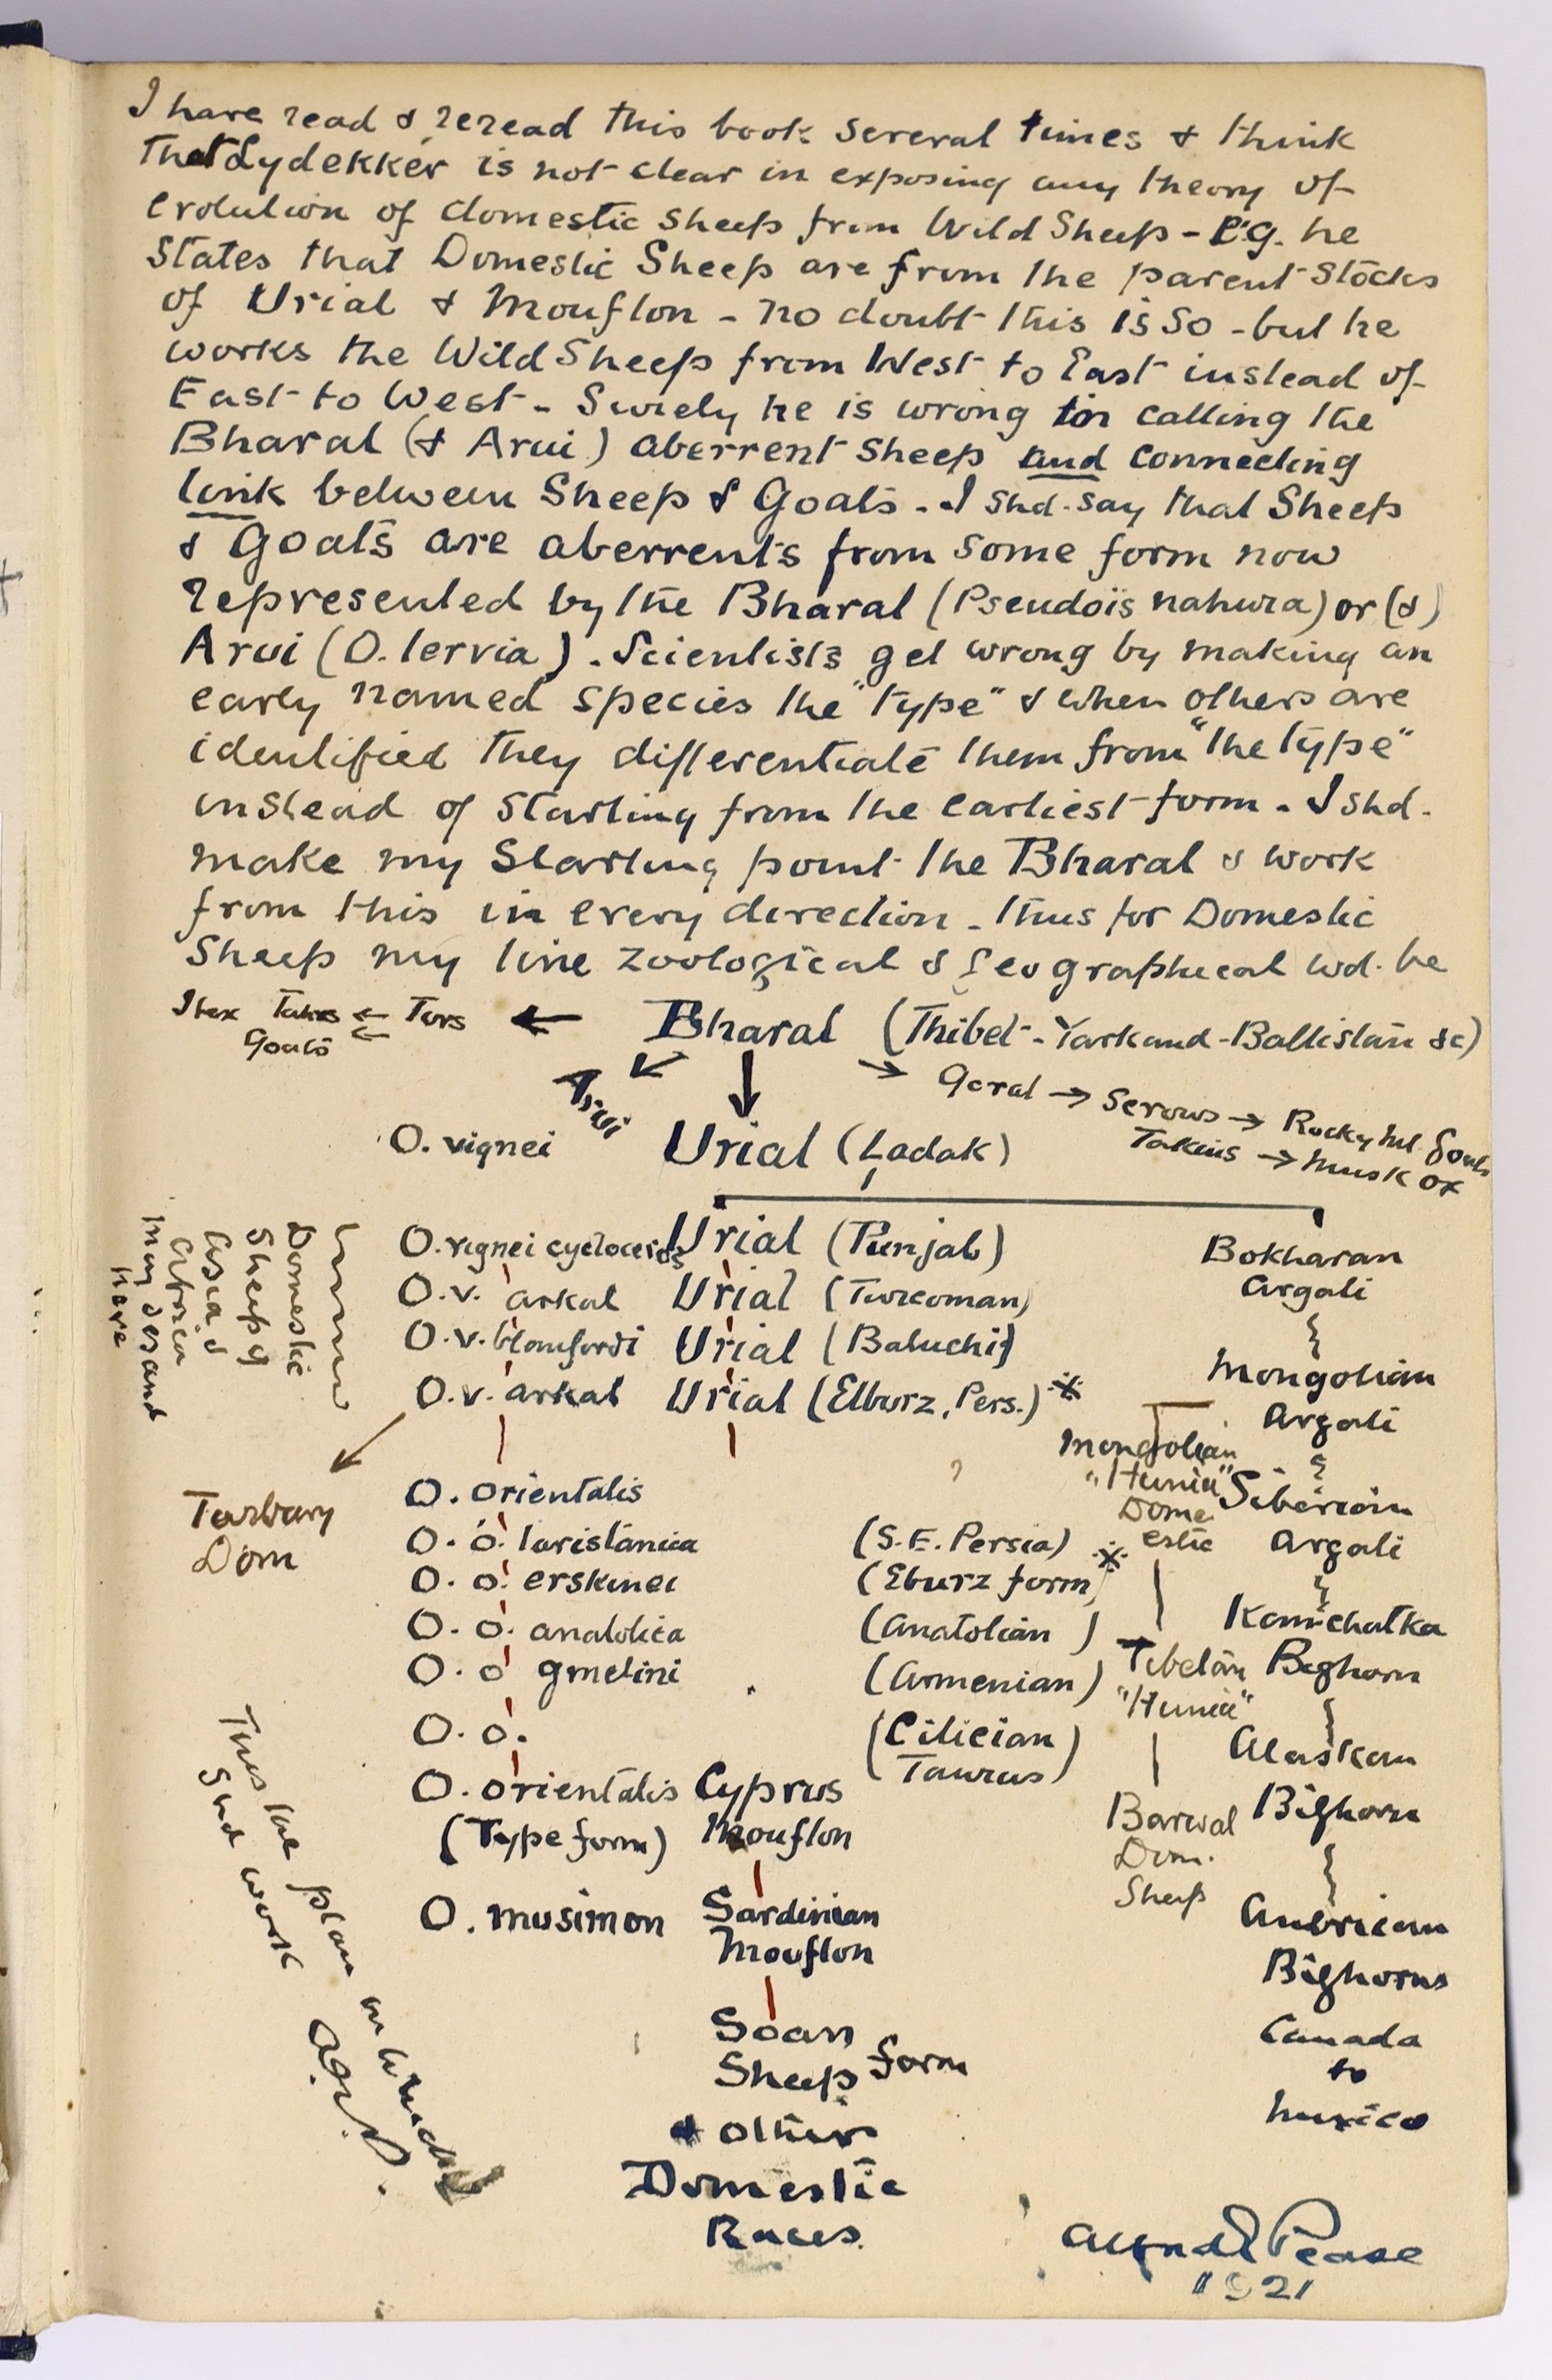 I have read & reread this book several times & think
that Lydekker is not clear in exposing any theory of
evolution of domestic sheep from Wild Sheep - E.g. he
States that Domestic Sheep are from the parent stocks
of Urial & Mouflon - no doubt this is so - but he
works the Wild Sheep from West to East instead of
East to West - Surely he is wrong in calling the
Bharal (& Arui) aberrent sheep and connecting
link between Sheep & Goats - I shd. say that Sheep
& Goats are aberrents from some form now
represented by the Bharal (Pseudoïs nahura) or (&)
Arui (O. lervia). Scientists get wrong by making an
early named species the "type" & when others are
identified they differentiate them from "the type"
instead of starting from the earliest form. I shd.
make my Starting point the Bharal & work
from this in every direction - thus for Domestic
Sheep my line zoological & geographical wd. be
Ibex Tahrs ← Tors ← Bharal (Thibet - Yarkand - Baltistan &c)
Goats ←
↙ Arui ↓ → Goral → Serows → Rocky Mt. Goats
Takins → Musk ox
O. vignei Urial (Ladak)
O. vignei cycloceros Urial (Punjab)
O. v. arkal Urial (Turcoman)
O. v. blanfordi Urial (Baluchi)
O. v. arkal Urial (Elburz, Pers.) *
Domestic
Sheep of
Asia &
Africa
may descend
here
Turbary
Dom
O. orientalis
O. o. laristanica (S.E. Persia)
O. o. erskinei (Eburz form) *
O. o. anatolica (Anatolian)
O. o. gmelini (Armenian)
O. o. (Cilician
Taurus)
O. orientalis Cyprus
(Type form) Mouflon
O. musimon Sardinian
Mouflon
Soan
Sheep form
& other
Domestic
Races.
Bokharan
Argali
Mongolian
Argali
Siberian
Argali
Kamchatka
Bighorn
Alaskan
Bighorn
American
Bighorns
Canada
to
Mexico
Mongolian
"Hunia"
Dome
estic
Tibetan
"Hunia"
Barwal
Dom.
Sheep
This the plan on which I
shd work
Alfred E Pease
1921